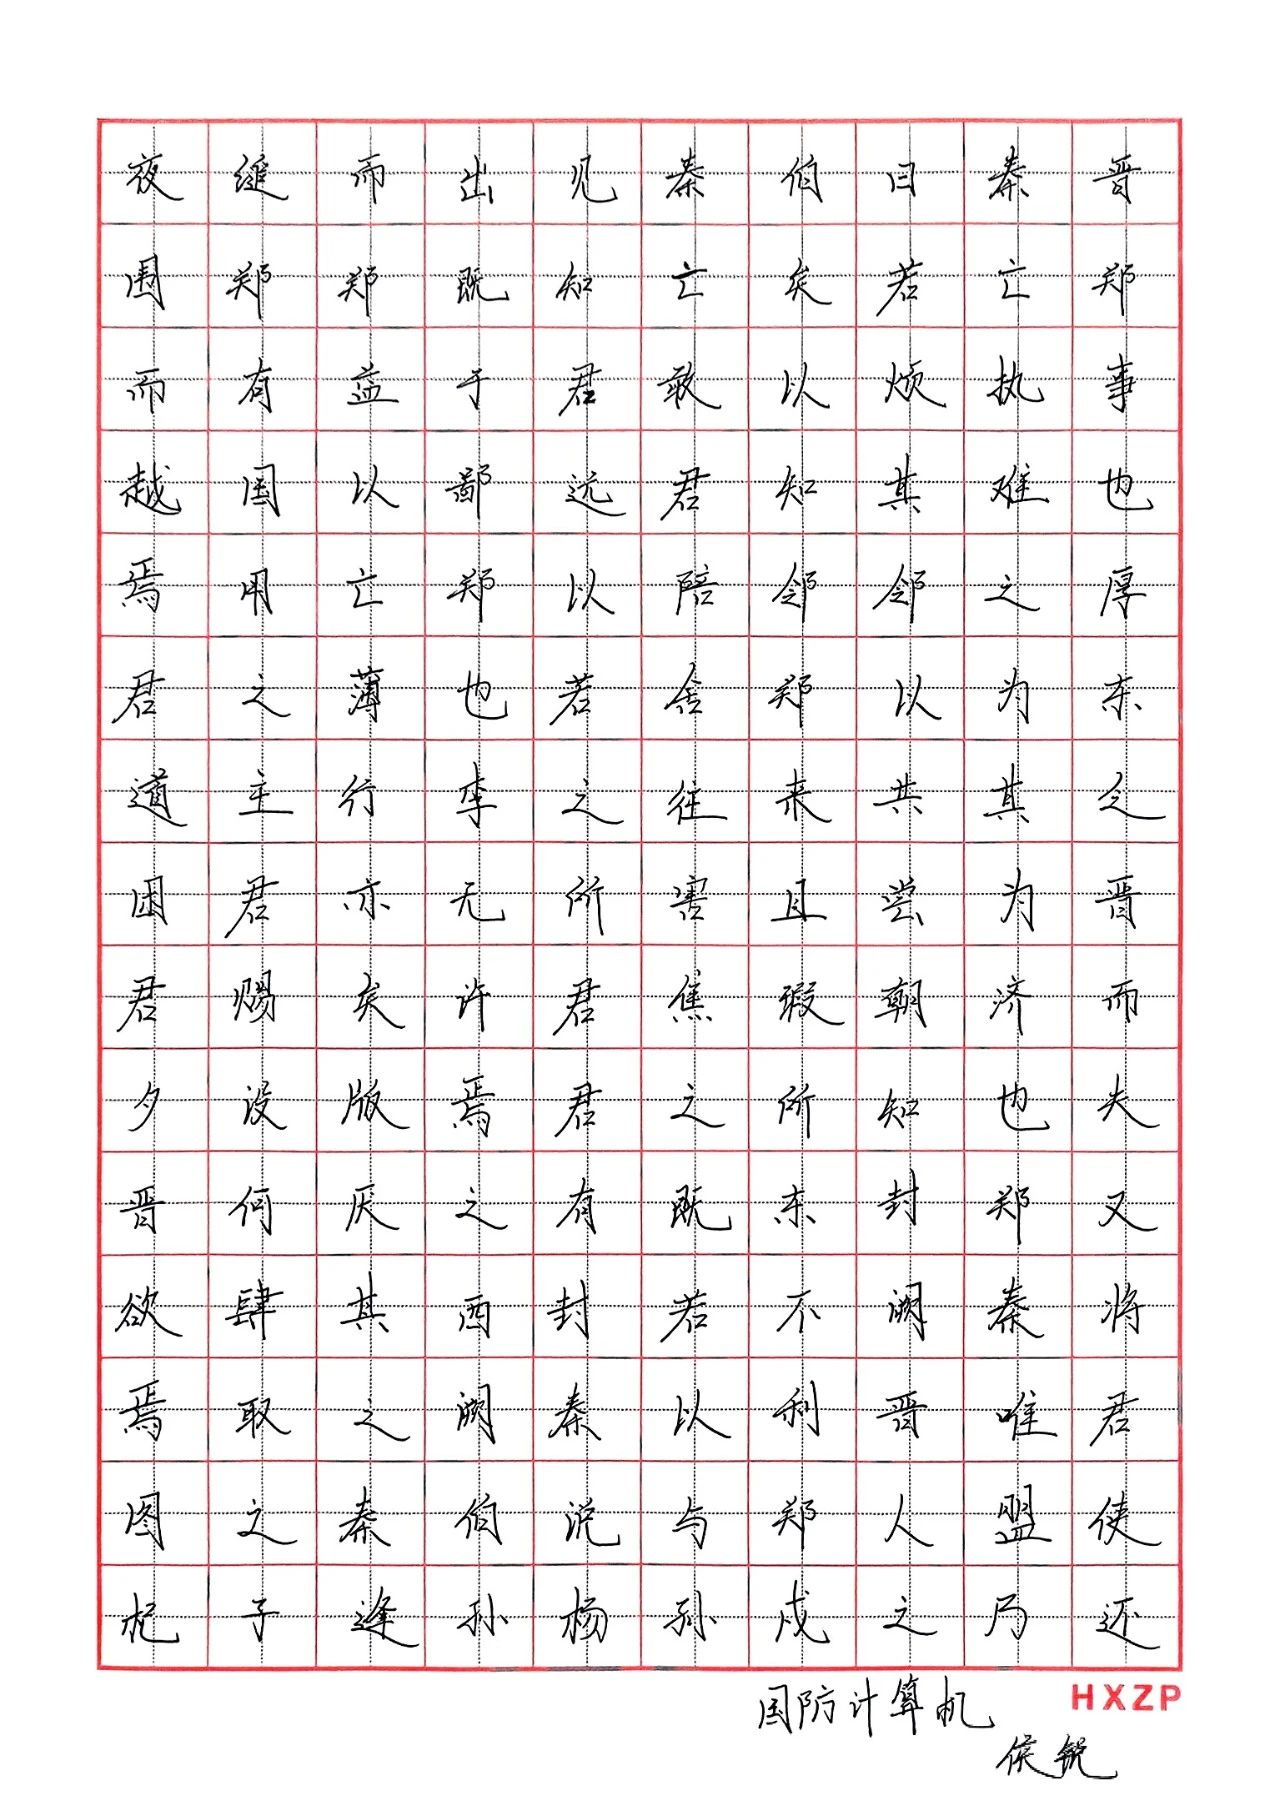 夜缒而出见秦伯曰秦晋
围郑郑既知亡矣若亡郑
而有益于君敢以烦执事
越国以鄙远君知其难也
焉用亡郑以陪邻邻之厚
君之薄也若舍郑以为东
道主行李之往来共其乏
困君亦无所害且尝为晋
君赐矣许君焦瑕朝济而
夕设版焉君之所知也夫
晋何厌之有既东封郑又
欲肆其西封若不阙秦将
焉取之阙秦以利晋唯君
图之秦伯说与郑人盟使
杞子逢孙杨孙戍之乃还
HXZP
国防计算机
侯锐